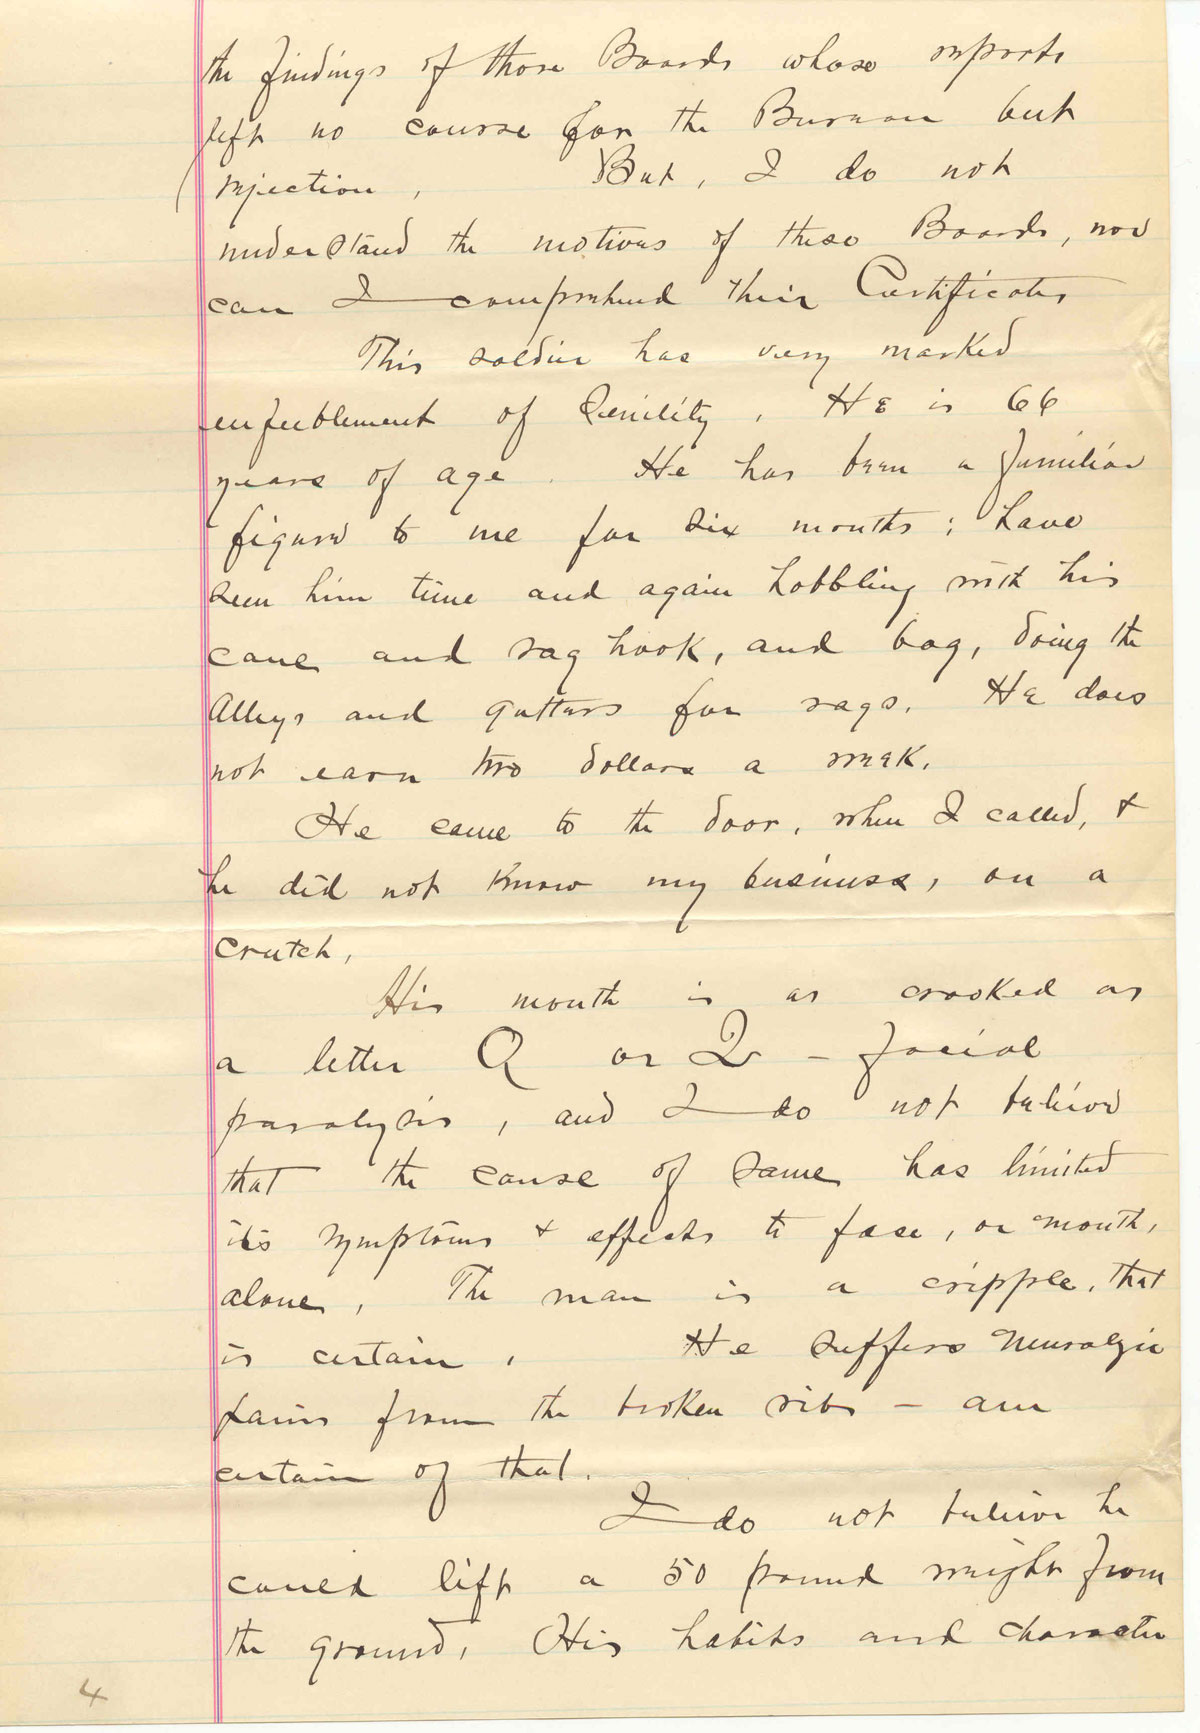 the findings of those Boards whose reports
left no course for the Bureau but
rejection. But, I do not
understand the motives of these Boards, nor
can I comprehend their Certificates
This soldier has very marked
enfeeblement of Senility. He is 66
years of age. He has been a familiar
figure to me for six months; have
seen him time and again hobbling with his
cane and rag hook, and bag, doing the
Alleys and gutters for rags. He does
not earn two dollars a week.
He came to the door, when I called, &
he did not know my business, on a
crutch,
His mouth is as crooked as
a letter Q or Q – facial
paralysis, and I do not believe
that the cause of same has limited
its symptoms & effects to face, or mouth,
alone. The man is a cripple, that
is certain. He suffers neuralgic
pains from the broken ribs – am
certain of that.
I do not believe he
could lift a 50 pound weight from
the ground. His habits and character
4